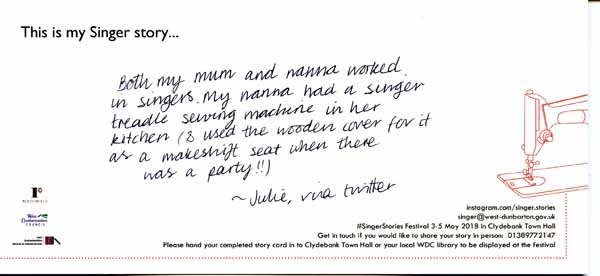 This is my Singer story...
Both my mum and nanna worked
in singers. My nanna had a singer
treadle sewing machine in her
kitchen (& used the wooden cover for it
as a makeshift seat when there
was a party!!)
~Julie, via twitter
instagram.com/singer.stories
singer@west-dunbarton.gov.uk
#SingerStories Festival 3-5 May 2018 in Clydebank Town Hall
Get in touch if you would like to share your story in person: 01389772147
Please hand your completed story card in to Clydebank Town Hall or your local WDC library to be displayed at the festival